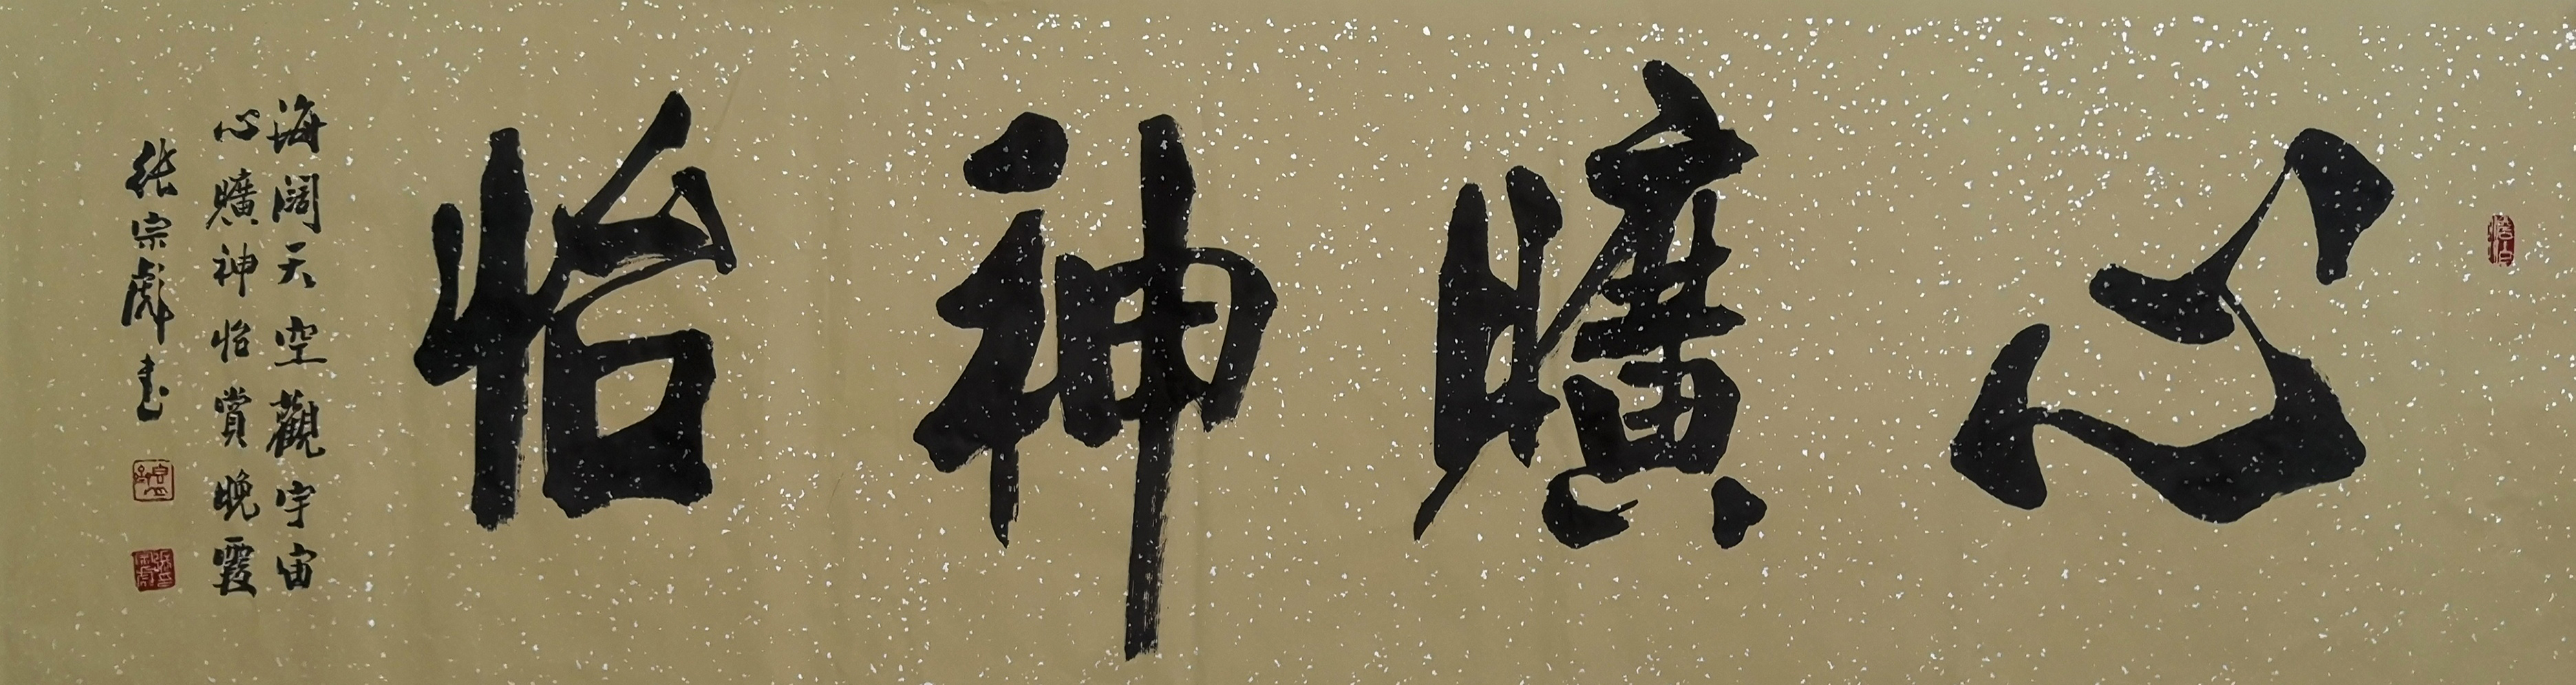 心曠神怡
海闊天空觀宇宙
心曠神怡賞晚霞
張宗彪书